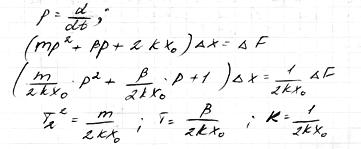 p = d/dt ;
(mp² + βp + 2kx₀) Δx = ΔF
(m/2kx₀ · p² + β/2kx₀ · p + 1) Δx = 1/2kx₀ ΔF
T₂² = m/2kx₀ ; T = β/2kx₀ ; K = 1/2kx₀